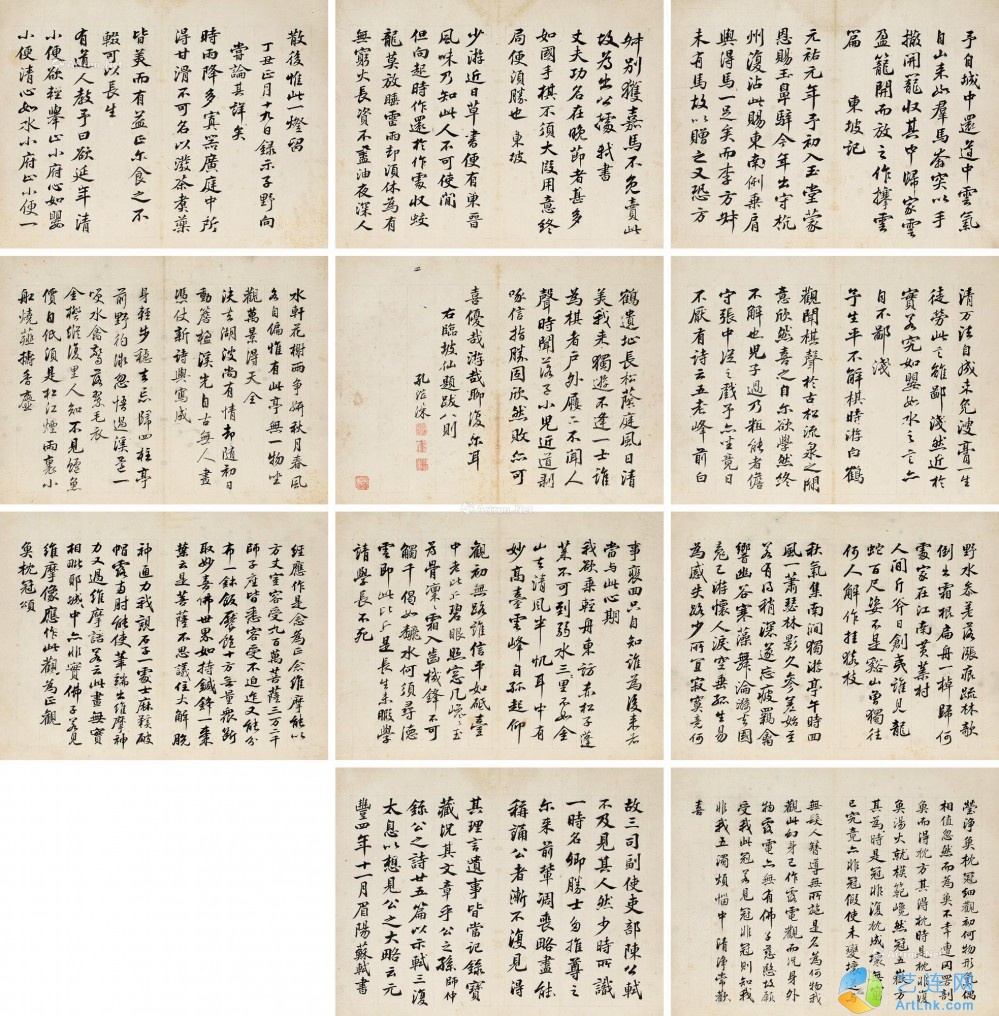 予自城中還道中雲氣
自山来如羣馬奔突以手
撥開籠收其中歸家雲
盈籠開而放之作攓雲
篇　東坡記
元祐元年予初入玉堂蒙
恩賜玉鼻騂今年出守杭
州復沾此賜東南例乗肩
輿得馬一足矣而李方叔
未有馬故以贈之又恐方
叔別獲嘉馬不免賣此
故為出公據軾書
丈夫功名在晚節者甚多
如國手棋不須大段用意終
局便須勝也　東坡
少游近日草書便有東晉
風味乃知此人不可使閒
但向起時作還於作處收蛟
龍莫放睡雷雨却須休為有
無窮火長資不盡油夜深人
散後惟此一燈留
丁丑正月十九日録示子野向
嘗論其詳矣
時雨降多寘器廣庭中所
得甘滑不可名以潑茶煑藥
皆美而有益正尔食之不
輟可以長生
有道人教予曰欲延年清
小便欲輕舉正小府心如嬰
小便清心如水小府正小便一
清万法自成未免膏一生
徒勞此三雖鄙淺然近於
實若究如嬰如水三言亦
自不鄙淺
予生平不解棋時游白鶴
觀聞棋聲於古松流泉之間
意欣然喜之自尔欲學然終
不解也兒子過乃粗能者儋
守張中從之戲予亦坐竟日
不厭有诗云五老峰前白
鶴遺址長松蔭庭風日清
美我来獨遊不逢一士誰
為棋者戶外屨二不聞人
聲時聞落子小兒近道剥
啄信指勝固欣然敗亦可
喜優哉游哉聊復尔耳
右臨坡仙題跋八則
孔继涑
水軒花榭兩争妍秋月春風
各自偏惟有此亭無一物坐
觀萬景得天全
决去湖波尚有情却随初日
動簷楹溪光自古無人畫
憑仗新詩與寫成
身輕步穩去忘歸四柱亭
前野彴微忽悟過溪還一
笑水禽驚落翠毛衣
金橙縱復里人知不見鱸魚
價自低須是松江煙雨裏小
船燒薤擣香虀
野水参差落漲痕疏林欹
倒出霜根扁舟一棹歸何
處家在江南黄葉村
人間斤斧日創夷誰見龍
蛇百尺姿不是谿山曽獨往
何人解作挂猿枝
秋氣集南澗獨游亭午時回
風一蕭瑟林影久参差始至
若有得稍深遂忘疲羈禽
響幽谷寒藻舞淪漪去國
魂已游懷人淚空垂孤生易
為感失路少所宜寂寞竟何
事裵回只自知誰為後来者
當与此心期
我欲乗輕舟東訪赤松子蓬
莱不可到弱水三万里不如金
山去清風半帆耳中有
妙高臺雲峰自孤起仰
觀初無路誰信平如砥臺
中老比丘碧眼照窓几巉二玉
為骨凛二霜入齒機鋒不可
觸千偈如翻水何須尋德
雲即此比丘是長生未暇學
請學長不死
經應作是念為正念维摩能以
方丈室容受九百萬菩薩三万二千
師子座皆悉容受不迫迮又能分
布一鉢飯饜飽十方無量衆断
取妙喜佛世界如持鍼鋒一棗
葉云是菩薩不思議住大解脱
神通力我觀石子一處士麻鞋破
帽露兩肘能使筆端出维摩神
力又過维摩詰若云此畫無實
相毗耶城中亦非實佛子若見
维摩像應作此觀為正觀
魚枕冠頌
瑩淨魚枕冠細觀初何物形氣偶
相值忽然而為魚不幸遭网罟剖
魚而得枕方其得枕時是枕非復
魚湯火就模範巉然冠五嶽方
其為時是冠非復枕成壞無
已究竟亦非冠假使未變壞
無髮人簪導無所施是名為何物我
觀此幻身已作露電觀而况身外
物露電亦無有佛子慈愍故願
受我此冠若見冠非冠則知我
非我五濁煩惱中清淨常歡
喜
故三司副使吏部陳公軾
不及見其人然少時所識
一時名卿勝士多推尊之
尔来前輩凋喪略盡能
稱誦公者漸不復見得
其理言遺事皆當記録寶
藏况其文章乎公之孫師仲
録公之诗廿五篇以示軾三復
太息以想見公之大略云元
豐四年十一月眉陽蘇軾書
艺连网
ArtLink.com